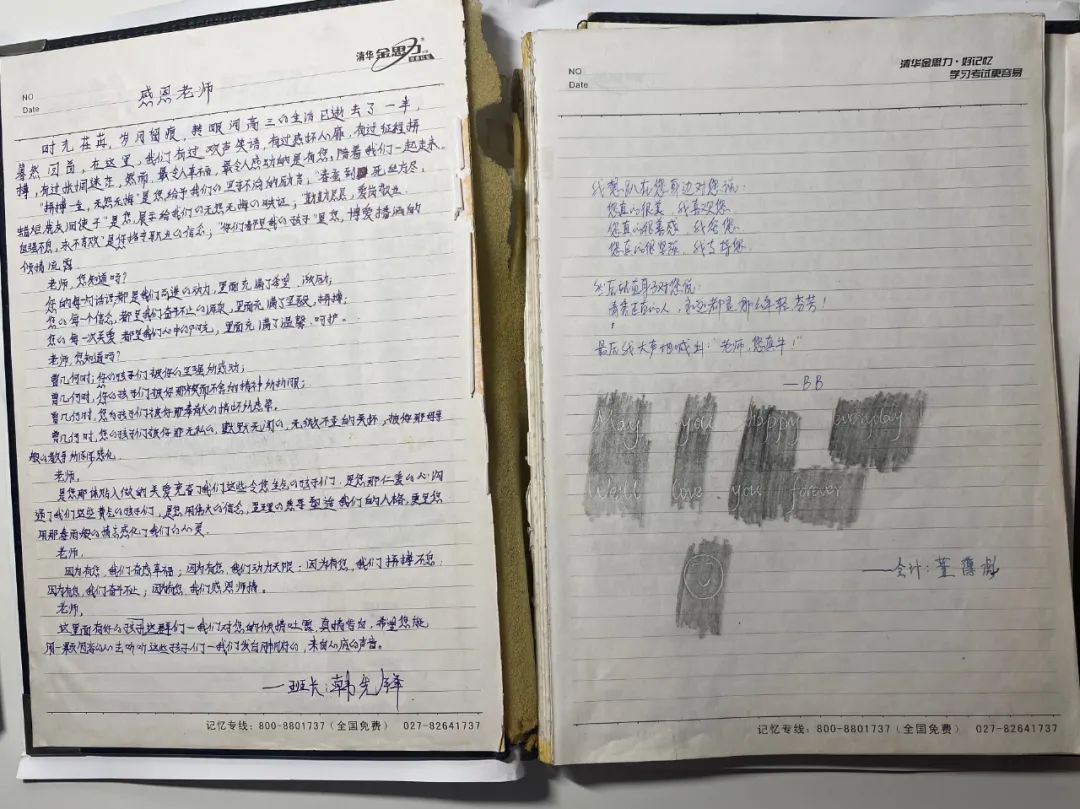 清华 金思力
NO
Date
感恩老师
时光荏苒,岁月留痕,转眼间高三的生活已逝去了一半,
蓦然回首,在这里,我们有过欢声笑语,有过热怀人靡,有过征程拼
搏,有过怅惘迷茫,然而,最令人幸福、最令人感动的是有您,陪着我们一起走来。
"拼搏一生,无怨无悔"是您给予我们的坚毅不渝的励言,"春蚕到死丝方尽,
蜡炬成灰泪使干"是您,展示给我们的无怨无悔的映证;"勤勤恳恳,爱岗敬业
自强不息,永不言败"是您恪守职业的信念;"你们都是我的孩子"是您,博爱播洒的
倾情流露
老师,您知道吗?
您的每一句话语都是我们前进的动力,里面充满了希望、激励;
您的每一个信念,都是我们奋斗不止的源泉,里面充满了坚毅、拼搏;
您的每一次关爱都是我们心中的阳光,里面充满了温馨、呵护。
老师,您知道吗?
曾几何时,您的孩子们被你的坚强所感动;
曾几何时,您的孩子们被你那锲而不舍的精神所折服;
曾几何时,您的孩子们被你那奉献的情怀所感染。
曾几何时,您的孩子们被你那无私的、默默无闻的、无微不至的关怀,被你那母亲
般的教导所深深感化
老师,
是您那体贴入微的关爱充实了我们这些令您生气的孩子们,是您那仁爱的心沟
通了我们这些责怨的孩子们,是您用伟大的信念,至理的慈善塑造我们的人格,更是您
用那春雨般的情怀感化了我们的心灵
老师,
因为有您,我们有感幸福;因为有您,我们动力无限;因为有您,我们拼搏不息
因为有您,我们奋斗不止;因为有您,我们感恩师情。
老师,
这里面有你的孩子这群们一我们对您的倾情吐露、真情告白,希望您能
用一颗包容的心去听听这些孩子们一我们发自肺腑的,来自心底的声音。
—班长:韩先锋
记忆专线:800-8801737(全国免费) 027-82641737
NO
Date
清华金思力·好记忆
学习考试更容易
我想趴在您耳边对您说:
您真的很美,我喜欢您
您真的很善感,我念您
您真的很坚强,我支持您
然后站直身子对您说:
请亲近真的人,永远都是那么年轻、芬芳!
最后我大声地喊出:"老师,您真牛!"
—BB
May you happy everyday
We'll love you forever
——会计:董
记忆专线:800-8801737(全国免费) 027-82641737